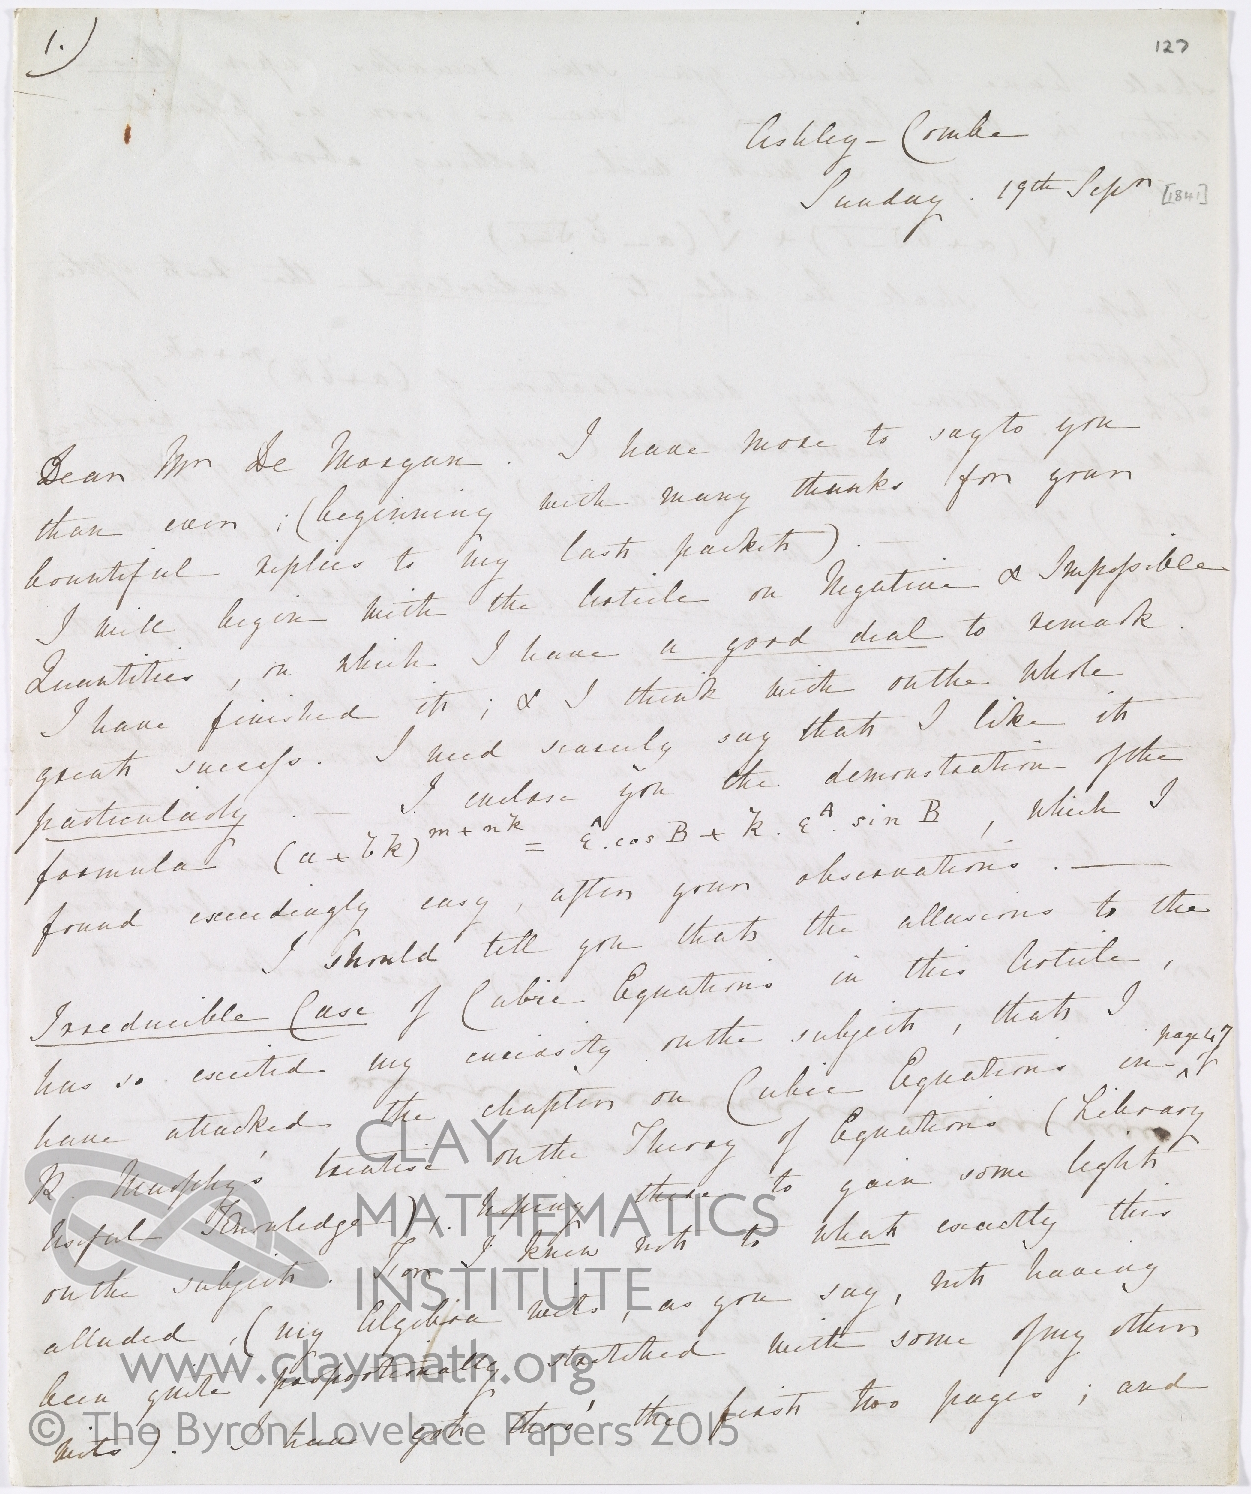 1.)
127
Ashley-Combe
Sunday. 19th Sepr [1841]
Dear Mr De Morgan. I have more to say to you
than ever; (beginning with many thanks for your
bountiful replies to my last packet). —
I will begin with the Article on Negative & Impossible
Quantities, on which I have a good deal to remark.
I have finished it; & I think with on the whole
great success. I need scarcely say that I like it
particularly. — I enclose you the demonstration of the
formula (a + bk)^{m + nk} = ε^A. cos B + k. ε^A. sin B, which I
found exceedingly easy, after your observations. —
I should tell you that the allusions to the
Irreducible Case of Cubic Equations in this Article,
has so excited my curiosity on the subject, that I
have attacked the chapter on Cubic Equations in page 47 of
R. Murphy's treatise on the Theory of Equations (Library
Useful Knowledge), hoping there to gain some light
on the subject. For I knew not to what exactly this
alluded, (my Algebra wits, as you say, not having
been quite proportionally stretched with some of my other
wits). I have got thro' the first two pages; and
CLAY
MATHEMATICS
INSTITUTE
www.claymath.org
© The Byron-Lovelace Papers 2015